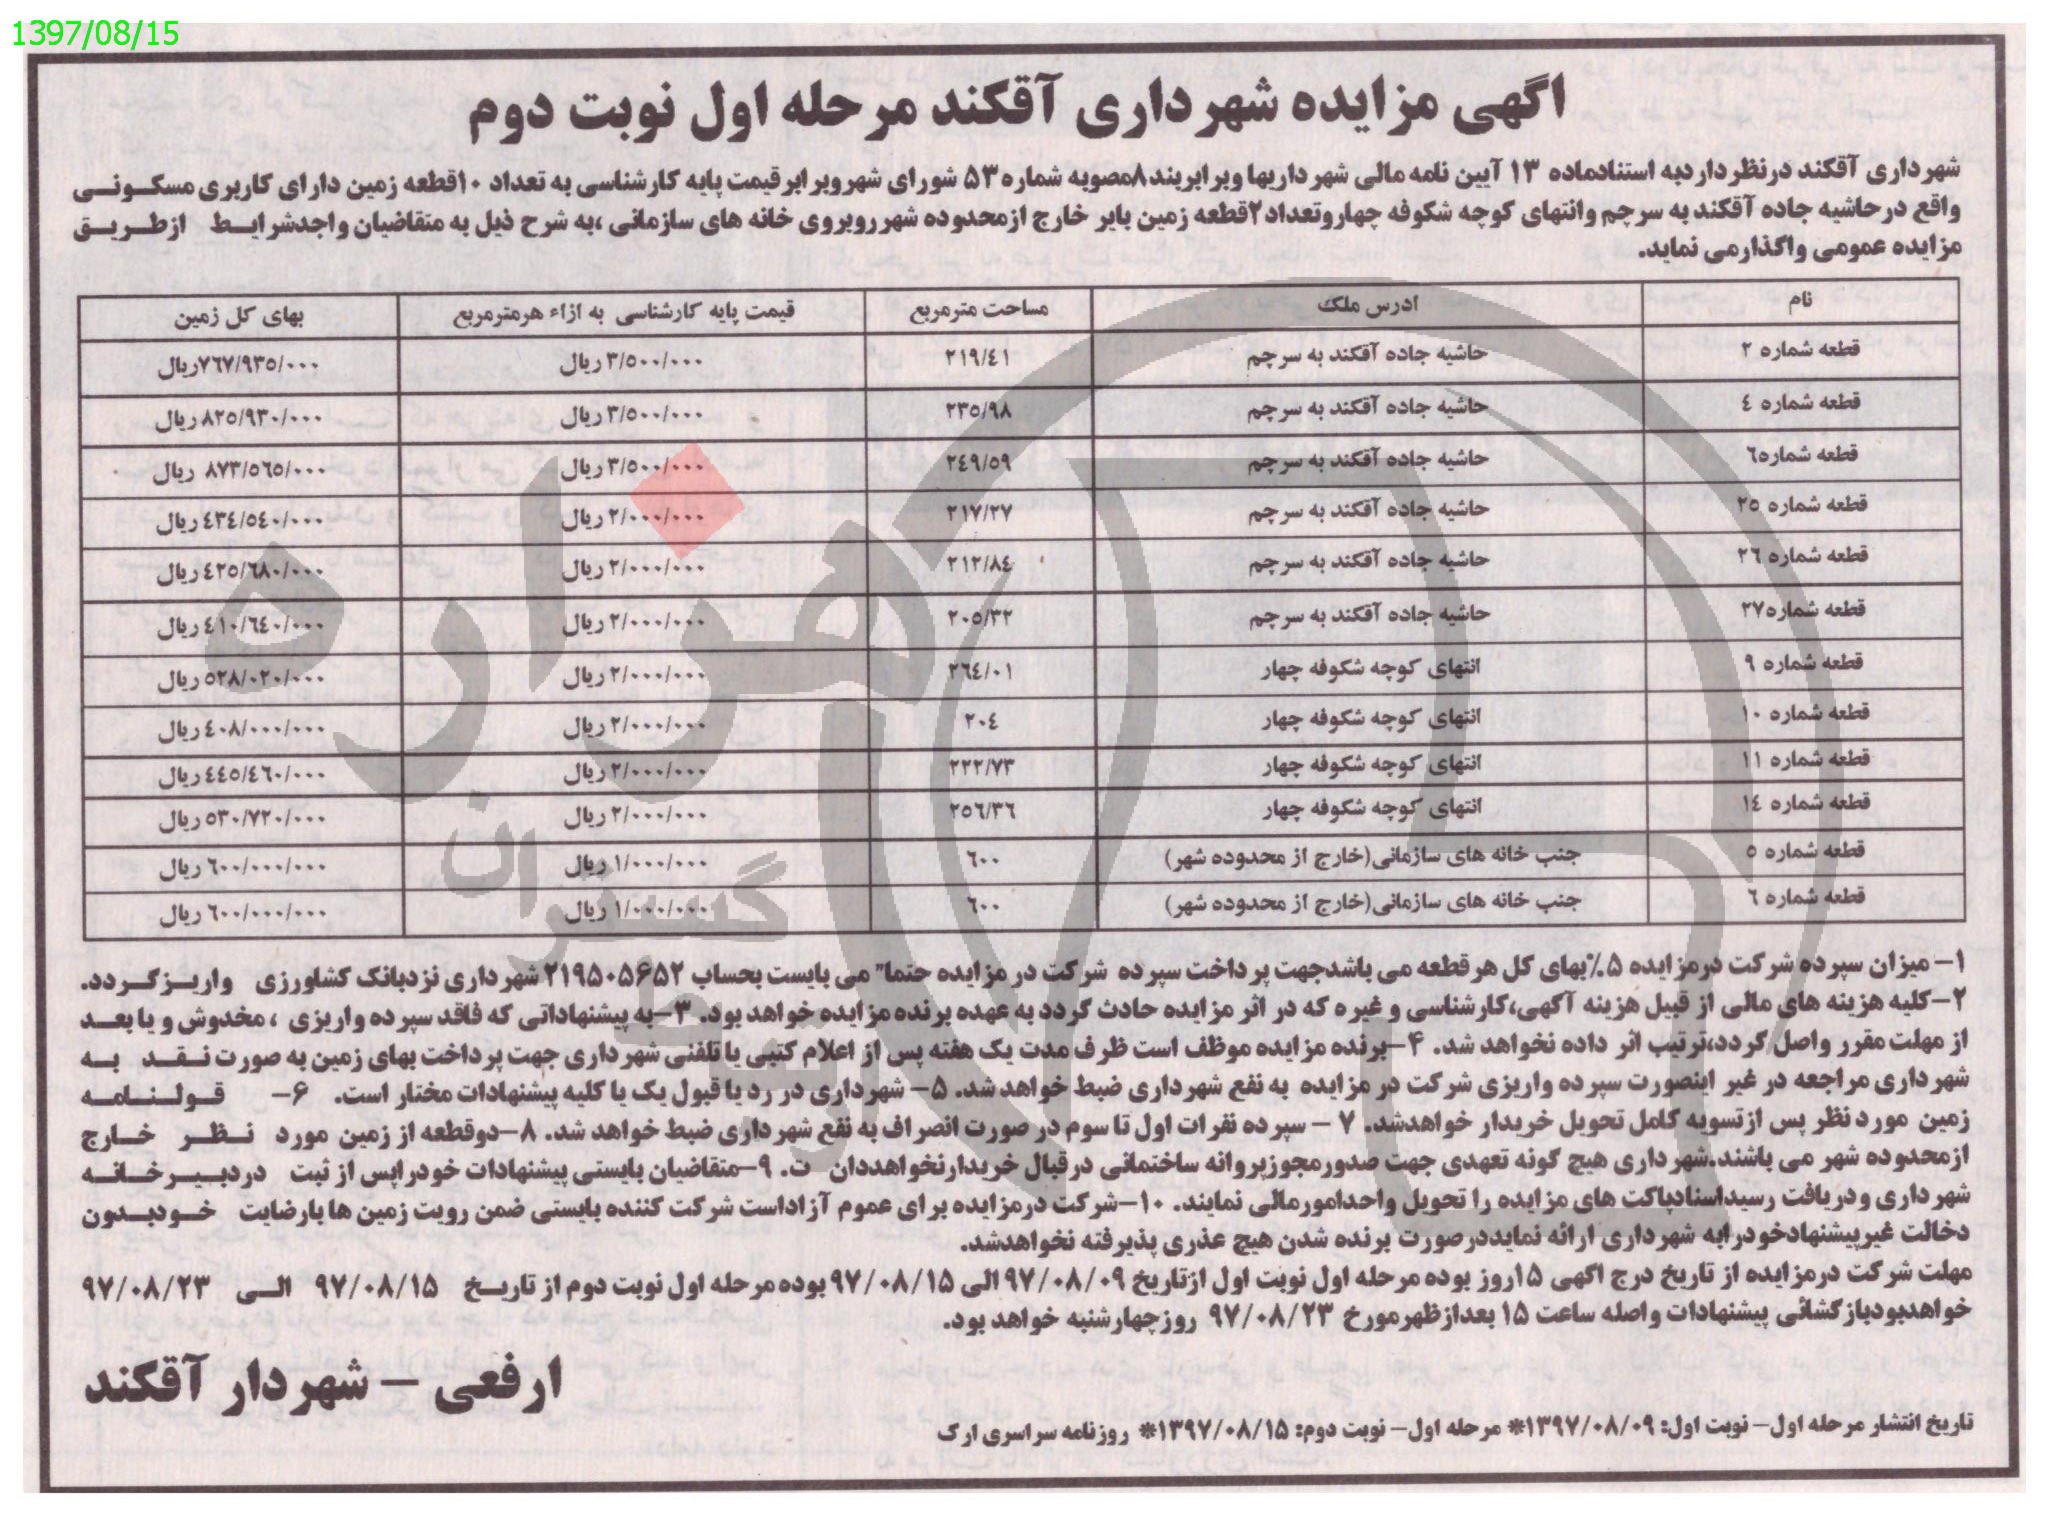 1397/08/15
اگهی مزایده شهرداری آقکند مرحله اول نوبت دوم
شهرداری آقکند درنظرداردبه استنادماده ۱۳ آیین نامه مالی شهرداریها وبرابربند۸مصوبه شماره۵۳ شورای شهروبرابرقیمت پایه کارشناسی به تعداد ۱۰قطعه زمین دارای کاربری مسکـونـی
واقع درحاشیه جاده آقکند به سرچم وانتهای کوچه شکوفه چهاروتعداد۲قطعه زمین بایر خارج ازمحدوده شهرروبروی خانه های سازمانی ،به شرح ذیل به متقاضیان واجدشرایـط ازطـریـق
مزایده عمومی واگذارمی نماید.
نام ادرس ملک مساحت مترمربع قیمت پایه کارشناسی به ازاء هرمترمربع بهای کل زمین
قطعه شماره ۲ حاشیه جاده آقکند به سرچم ۲۱۹/٤۱ ۳/۵۰۰/۰۰۰ ریال ۷٦۷/۹۳۵/۰۰۰ریال
قطعه شماره ٤ حاشیه جاده آقکند به سرچم ۲۳۵/۹۸ ۳/۵۰۰/۰۰۰ ریال ۸۲۵/۹۳۰/۰۰۰ ریال
قطعه شماره٦ حاشیه جاده آقکند به سرچم ۲٤۹/۵۹ ۳/۵۰۰/۰۰۰ ریال ۸۷۳/۵٦۵/۰۰۰ ریال
قطعه شماره ۲۵ حاشیه جاده آقکند به سرچم ۲۱۷/۲۷ ۲/۰۰۰/۰۰۰ ریال ٤۳٤/۵٤۰/۰۰۰ ریال
قطعه شماره ۲٦ حاشیه جاده آقکند به سرچم ۲۱۲/۸٤ ۲/۰۰۰/۰۰۰ ریال ٤۲۵/٦۸۰/۰۰۰ ریال
قطعه شماره۲۷ حاشیه جاده آقکند به سرچم ۲۰۵/۳۲ ۲/۰۰۰/۰۰۰ ریال ٤۱۰/٦٤۰/۰۰۰ ریال
قطعه شماره ۹ انتهای کوچه شکوفه چهار ۲٦٤/۰۱ ۲/۰۰۰/۰۰۰ ریال ۵۲۸/۰۲۰/۰۰۰ ریال
قطعه شماره ۱۰ انتهای کوچه شکوفه چهار ۲۰٤ ۲/۰۰۰/۰۰۰ ریال ٤۰۸/۰۰۰/۰۰۰ ریال
قطعه شماره ۱۱ انتهای کوچه شکوفه چهار ۲۲۲/۷۳ ۲/۰۰۰/۰۰۰ ریال ٤٤۵/٤٦۰/۰۰۰ ریال
قطعه شماره ۱٤ انتهای کوچه شکوفه چهار ۲۵٦/۳٦ ۲/۰۰۰/۰۰۰ ریال ۵۳۰/۷۲۰/۰۰۰ ریال
قطعه شماره ۵ جنب خانه های سازمانی(خارج از محدوده شهر) ٦۰۰ ۱/۰۰۰/۰۰۰ ریال ٦۰۰/۰۰۰/۰۰۰ ریال
قطعه شماره ٦ جنب خانه های سازمانی(خارج از محدوده شهر) ٦۰۰ ۱/۰۰۰/۰۰۰ ریال ٦۰۰/۰۰۰/۰۰۰ ریال
۱- میزان سپرده شرکت درمزایده ۵٪بهای کل هرقطعه می باشدجهت پرداخت سپرده شرکت در مزایده حتما" می بایست بحساب ۲۱۹۵۰۵۶۵۲ شهرداری نزدبانک کشاورزی واریـزگـردد.
۲-کلیه هزینه های مالی از قبیل هزینه آگهی،کارشناسی و غیره که در اثر مزایده حادث گردد به عهده برنده مزایده خواهد بود. ۳-به پیشنهاداتی که فاقد سپرده واریزی ، مخدوش و یا بعد
از مهلت مقرر واصل گردد،ترتیب اثر داده نخواهد شد. ۴-برنده مزایده موظف است ظرف مدت یک هفته پس از اعلام کتبی یا تلفنی شهرداری جهت پرداخت بهای زمین به صورت نـقـد به
شهرداری مراجعه در غیر اینصورت سپرده واریزی شرکت در مزایده به نفع شهرداری ضبط خواهد شد. ۵- شهرداری در رد یا قبول یک یا کلیه پیشنهادات مختار است. ۶- قـولـنـامـه
زمین مورد نظر پس ازتسویه کامل تحویل خریدار خواهدشد. ۷ - سپرده نفرات اول تا سوم در صورت انصراف به نفع شهرداری ضبط خواهد شد. ۸-دوقطعه از زمین مورد نـظـر خـارج
ازمحدوده شهر می باشند.شهرداری هیچ گونه تعهدی جهت صدورمجوزپروانه ساختمانی درقبال خریدارنخواهددان ت. ۹-متقاضیان بایستی پیشنهادات خودراپس از ثبت دردبـیـرخـانـه
شهرداری ودریافت رسیداسنادپاکت های مزایده را تحویل واحدامورمالی نمایند. ۱۰-شرکت درمزایده برای عموم آزاداست شرکت کننده بایستی ضمن رویت زمین ها بارضایت خـودبـدون
دخالت غیرپیشنهادخودرابه شهرداری ارائه نمایددرصورت برنده شدن هیچ عذری پذیرفته نخواهدشد.
مهلت شرکت درمزایده از تاریخ درج اگهی ۱۵روز بوده مرحله اول نوبت اول ازتاریخ ۹۷/۰۸/۰۹الی ۹۷/۰۸/۱۵ بوده مرحله اول نوبت دوم از تاریـخ ۹۷/۰۸/۱۵ الـی ۹۷/۰۸/۲۳
خواهدبودبازگشائی پیشنهادات واصله ساعت ۱۵ بعدازظهرمورخ ۹۷/۰۸/۲۳ روزچهارشنبه خواهد بود.
ارفعی – شهردار آقکند
تاریخ انتشار مرحله اول- نوبت اول: ۱۳۹۷/۰۸/۰۹* مرحله اول- نوبت دوم: ۱۳۹۷/۰۸/۱۵* روزنامه سراسری ارک
هزاره
گستران